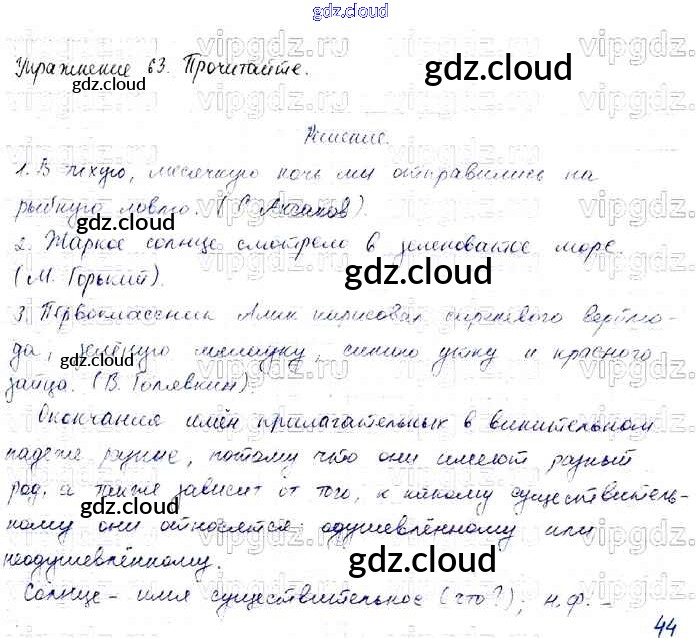 gdz.cloud
Упражнение 63. Прочитайте.
gdz.cloud
gdz.cloud
Решение.
1. В тихую, месячную ночь мы отправились на
рыбную ловлю. (С. Аксаков).
gdz.cloud
2. Жаркое солнце смотрело в зеленоватое море.
(М. Горький).
gdz.cloud
3. Первоклассник Алик нарисовал сиреневого верблю-
да, зелёную лягушку, синюю утку и красного
gdz.cloud
зайца. (В. Голявкин).
gdz.cloud
Окончания имён прилагательных в винительном
падеже разные, потому что они имеют разный
род, а также зависит от того, к какому существитель-
gdz.cloud
ному они относятся: одушевлённому или
неодушевлённому.
gdz.cloud
Солнце – имя существительное (что?), н.ф. –
44
vipgdz.ru